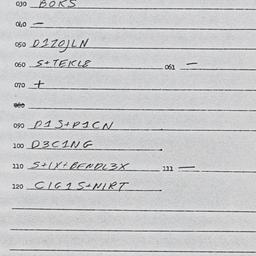 030 BOKS
040 —
050 D1Z0JLN
060 S+TEKL8 061 —
070 +
080
090 P1S+P1CN
100 D3C1NG
110 S+IX+BENDL3X 111 —
120 C1G1S+NIRT